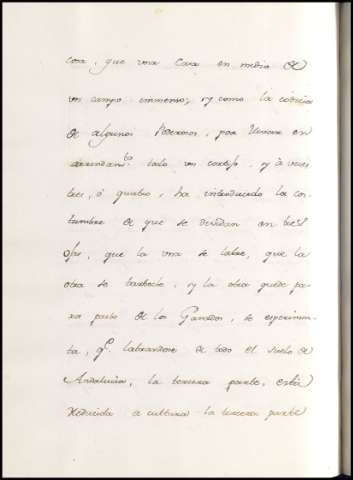 cosa, que una Casa en medio de
un campo inmenso, y como la codicia
de algunos Poderosos, por llevar en
arrendam.to todo un cortijo, y a veces
tres, ó quatro, ha introducido la cos-
tumbre de que se dividan en tres
ojas, que la una se labre, que la
otra se barbeche, y la otra quede pa-
ra pasto de los Ganados, se experimen-
ta, q.e labrandose de todo el suelo de
Andalucia, la tercera parte, está
reducida a cultura la tercera parte